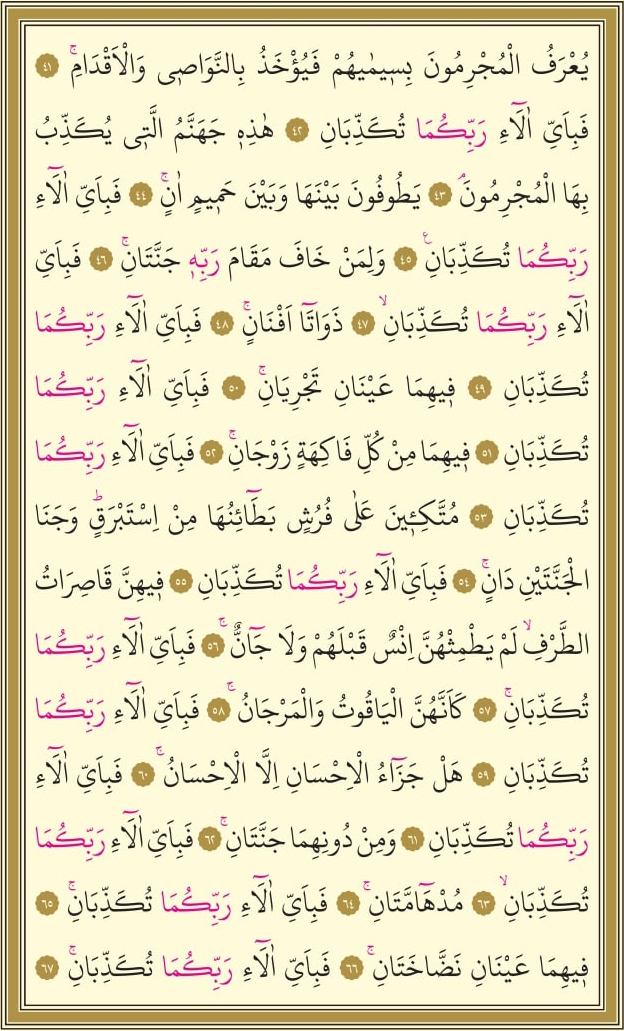 يُعْرَفُ الْمُجْرِمُونَ بِس۪يمٰيهُمْ فَيُؤْخَذُ بِالنَّوَاص۪ي وَالْاَقْدَامِۚ ﴿٤١﴾
فَبِاَيِّ اٰلَٓاءِ رَبِّكُمَا تُكَذِّبَانِ ﴿٤٢﴾ هٰذِه۪ جَهَنَّمُ الَّت۪ي يُكَذِّبُ
بِهَا الْمُجْرِمُونَۢ ﴿٤٣﴾ يَطُوفُونَ بَيْنَهَا وَبَيْنَ حَم۪يمٍ اٰنٍۚ ﴿٤٤﴾ فَبِاَيِّ اٰلَٓاءِ
رَبِّكُمَا تُكَذِّبَانِ۟ ﴿٤٥﴾ وَلِمَنْ خَافَ مَقَامَ رَبِّه۪ جَنَّتَانِۚ ﴿٤٦﴾ فَبِاَيِّ
اٰلَٓاءِ رَبِّكُمَا تُكَذِّبَانِۙ ﴿٤٧﴾ ذَوَاتَٓا اَفْنَانٍۚ ﴿٤٨﴾ فَبِاَيِّ اٰلَٓاءِ رَبِّكُمَا
تُكَذِّبَانِ ﴿٤٩﴾ ف۪يهِمَا عَيْنَانِ تَجْرِيَانِۚ ﴿٥٠﴾ فَبِاَيِّ اٰلَٓاءِ رَبِّكُمَا
تُكَذِّبَانِ ﴿٥١﴾ ف۪يهِمَا مِنْ كُلِّ فَاكِهَةٍ زَوْجَانِۚ ﴿٥٢﴾ فَبِاَيِّ اٰلَٓاءِ رَبِّكُمَا
تُكَذِّبَانِ ﴿٥٣﴾ مُتَّكِـ۪ٔينَ عَلٰى فُرُشٍ بَطَٓائِنُهَا مِنْ اِسْتَبْرَقٍۜ وَجَنَا
الْجَنَّتَيْنِ دَانٍۚ ﴿٥٤﴾ فَبِاَيِّ اٰلَٓاءِ رَبِّكُمَا تُكَذِّبَانِ ﴿٥٥﴾ ف۪يهِنَّ قَاصِرَاتُ
الطَّرْفِۙ لَمْ يَطْمِثْهُنَّ اِنْسٌ قَبْلَهُمْ وَلَا جَٓانٌّۚ ﴿٥٦﴾ فَبِاَيِّ اٰلَٓاءِ رَبِّكُمَا
تُكَذِّبَانِۚ ﴿٥٧﴾ كَاَنَّهُنَّ الْيَاقُوتُ وَالْمَرْجَانُۚ ﴿٥٨﴾ فَبِاَيِّ اٰلَٓاءِ رَبِّكُمَا
تُكَذِّبَانِ ﴿٥٩﴾ هَلْ جَزَٓاءُ الْاِحْسَانِ اِلَّا الْاِحْسَانُۚ ﴿٦٠﴾ فَبِاَيِّ اٰلَٓاءِ
رَبِّكُمَا تُكَذِّبَانِ ﴿٦١﴾ وَمِنْ دُونِهِمَا جَنَّتَانِۚ ﴿٦٢﴾ فَبِاَيِّ اٰلَٓاءِ رَبِّكُمَا
تُكَذِّبَانِۙ ﴿٦٣﴾ مُدْهَٓامَّتَانِۚ ﴿٦٤﴾ فَبِاَيِّ اٰلَٓاءِ رَبِّكُمَا تُكَذِّبَانِۚ ﴿٦٥﴾
ف۪يهِمَا عَيْنَانِ نَضَّاخَتَانِۚ ﴿٦٦﴾ فَبِاَيِّ اٰلَٓاءِ رَبِّكُمَا تُكَذِّبَانِۚ ﴿٦٧﴾